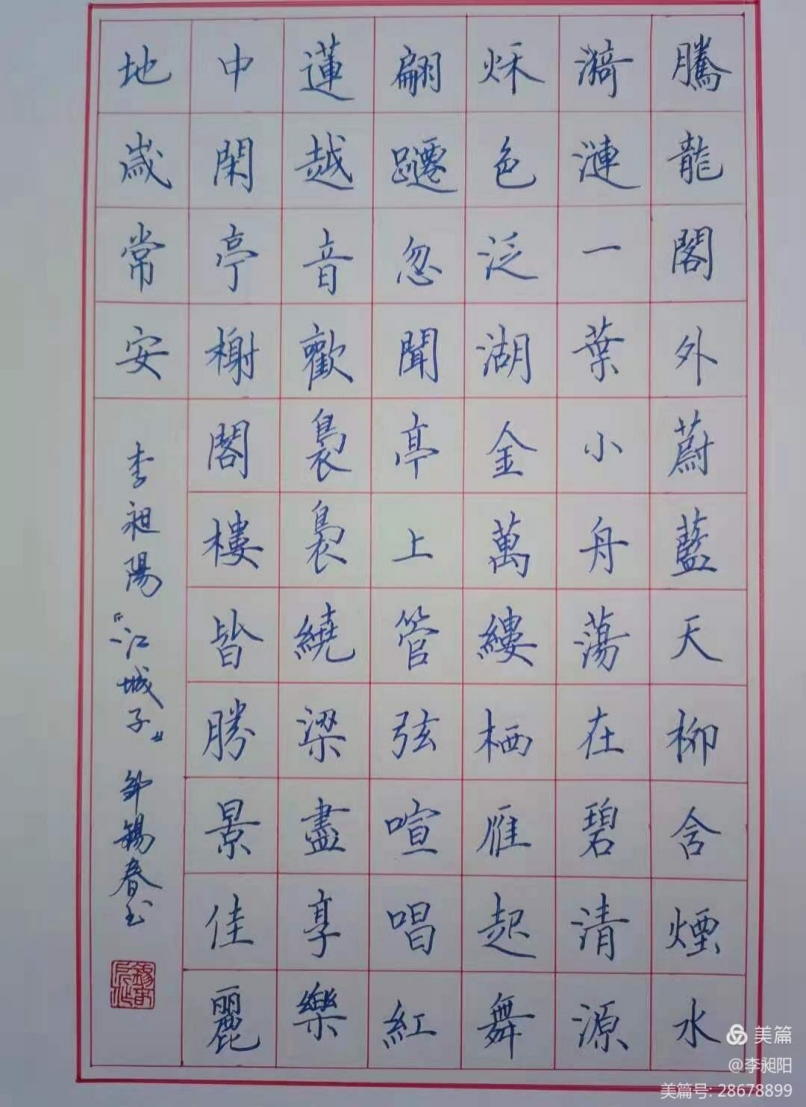 騰龍閣外蔚藍天柳含煙水
漪漣一葉小舟蕩在碧清源
秌色泛湖金萬縷栖雁起舞
翩躚忽聞亭上管弦喧唱紅
蓮越音歡裊裊繞梁盡享樂
中閑亭榭閣樓皆勝景佳麗
地歲常安
李昶陽『江城子』 邹錫春书
美篇
@李昶阳
美篇号: 28678899